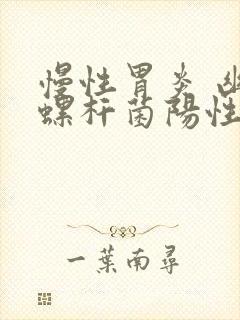 慢性胃炎 幽
螺杆菌陽性
一葉南尋